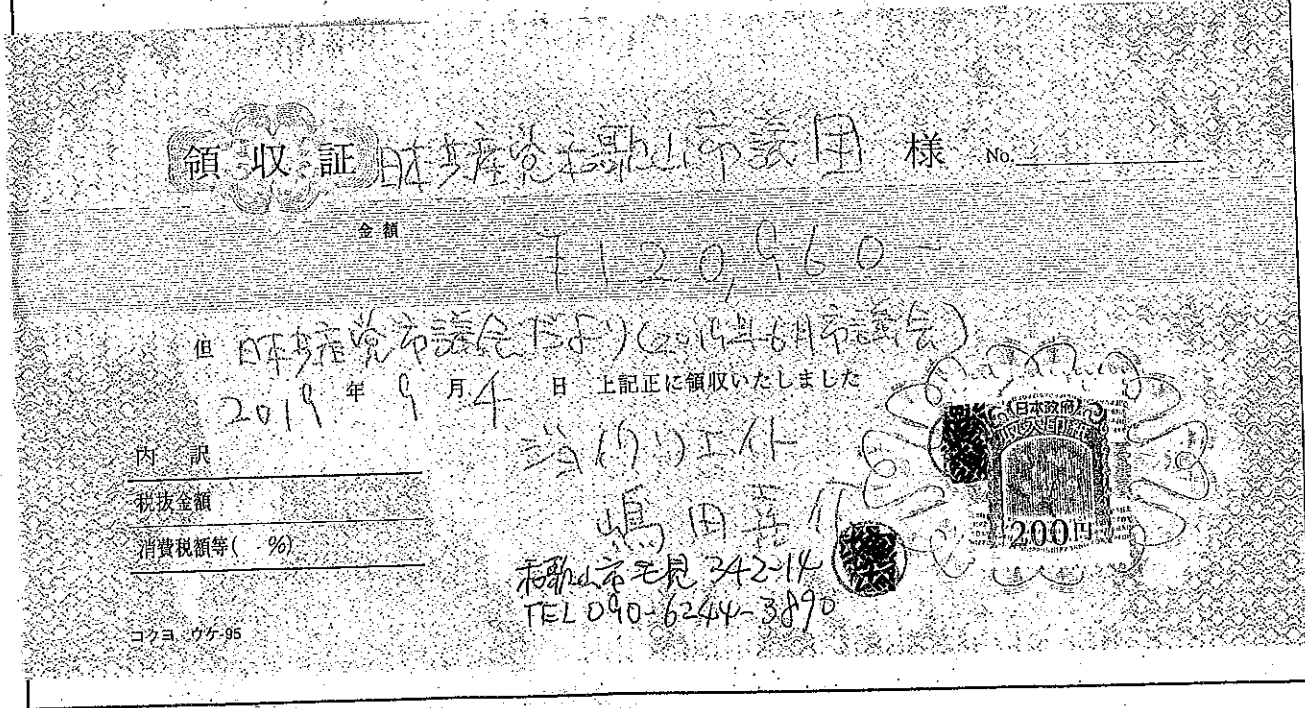 領収証 日本共産党和歌山市議団 様 No.
金額
¥120,960-
但 日本共産党市議会だより(2019年6月市議会)
2019年 9月 4日 上記正に領収いたしました
内訳
税抜金額
消費税額等( %)
クリエイト
嶋田喜
和歌山市毛見 342-14
TEL 090-6244-3890
コクヨ ウケ-95
日本政府
収入印紙
200円